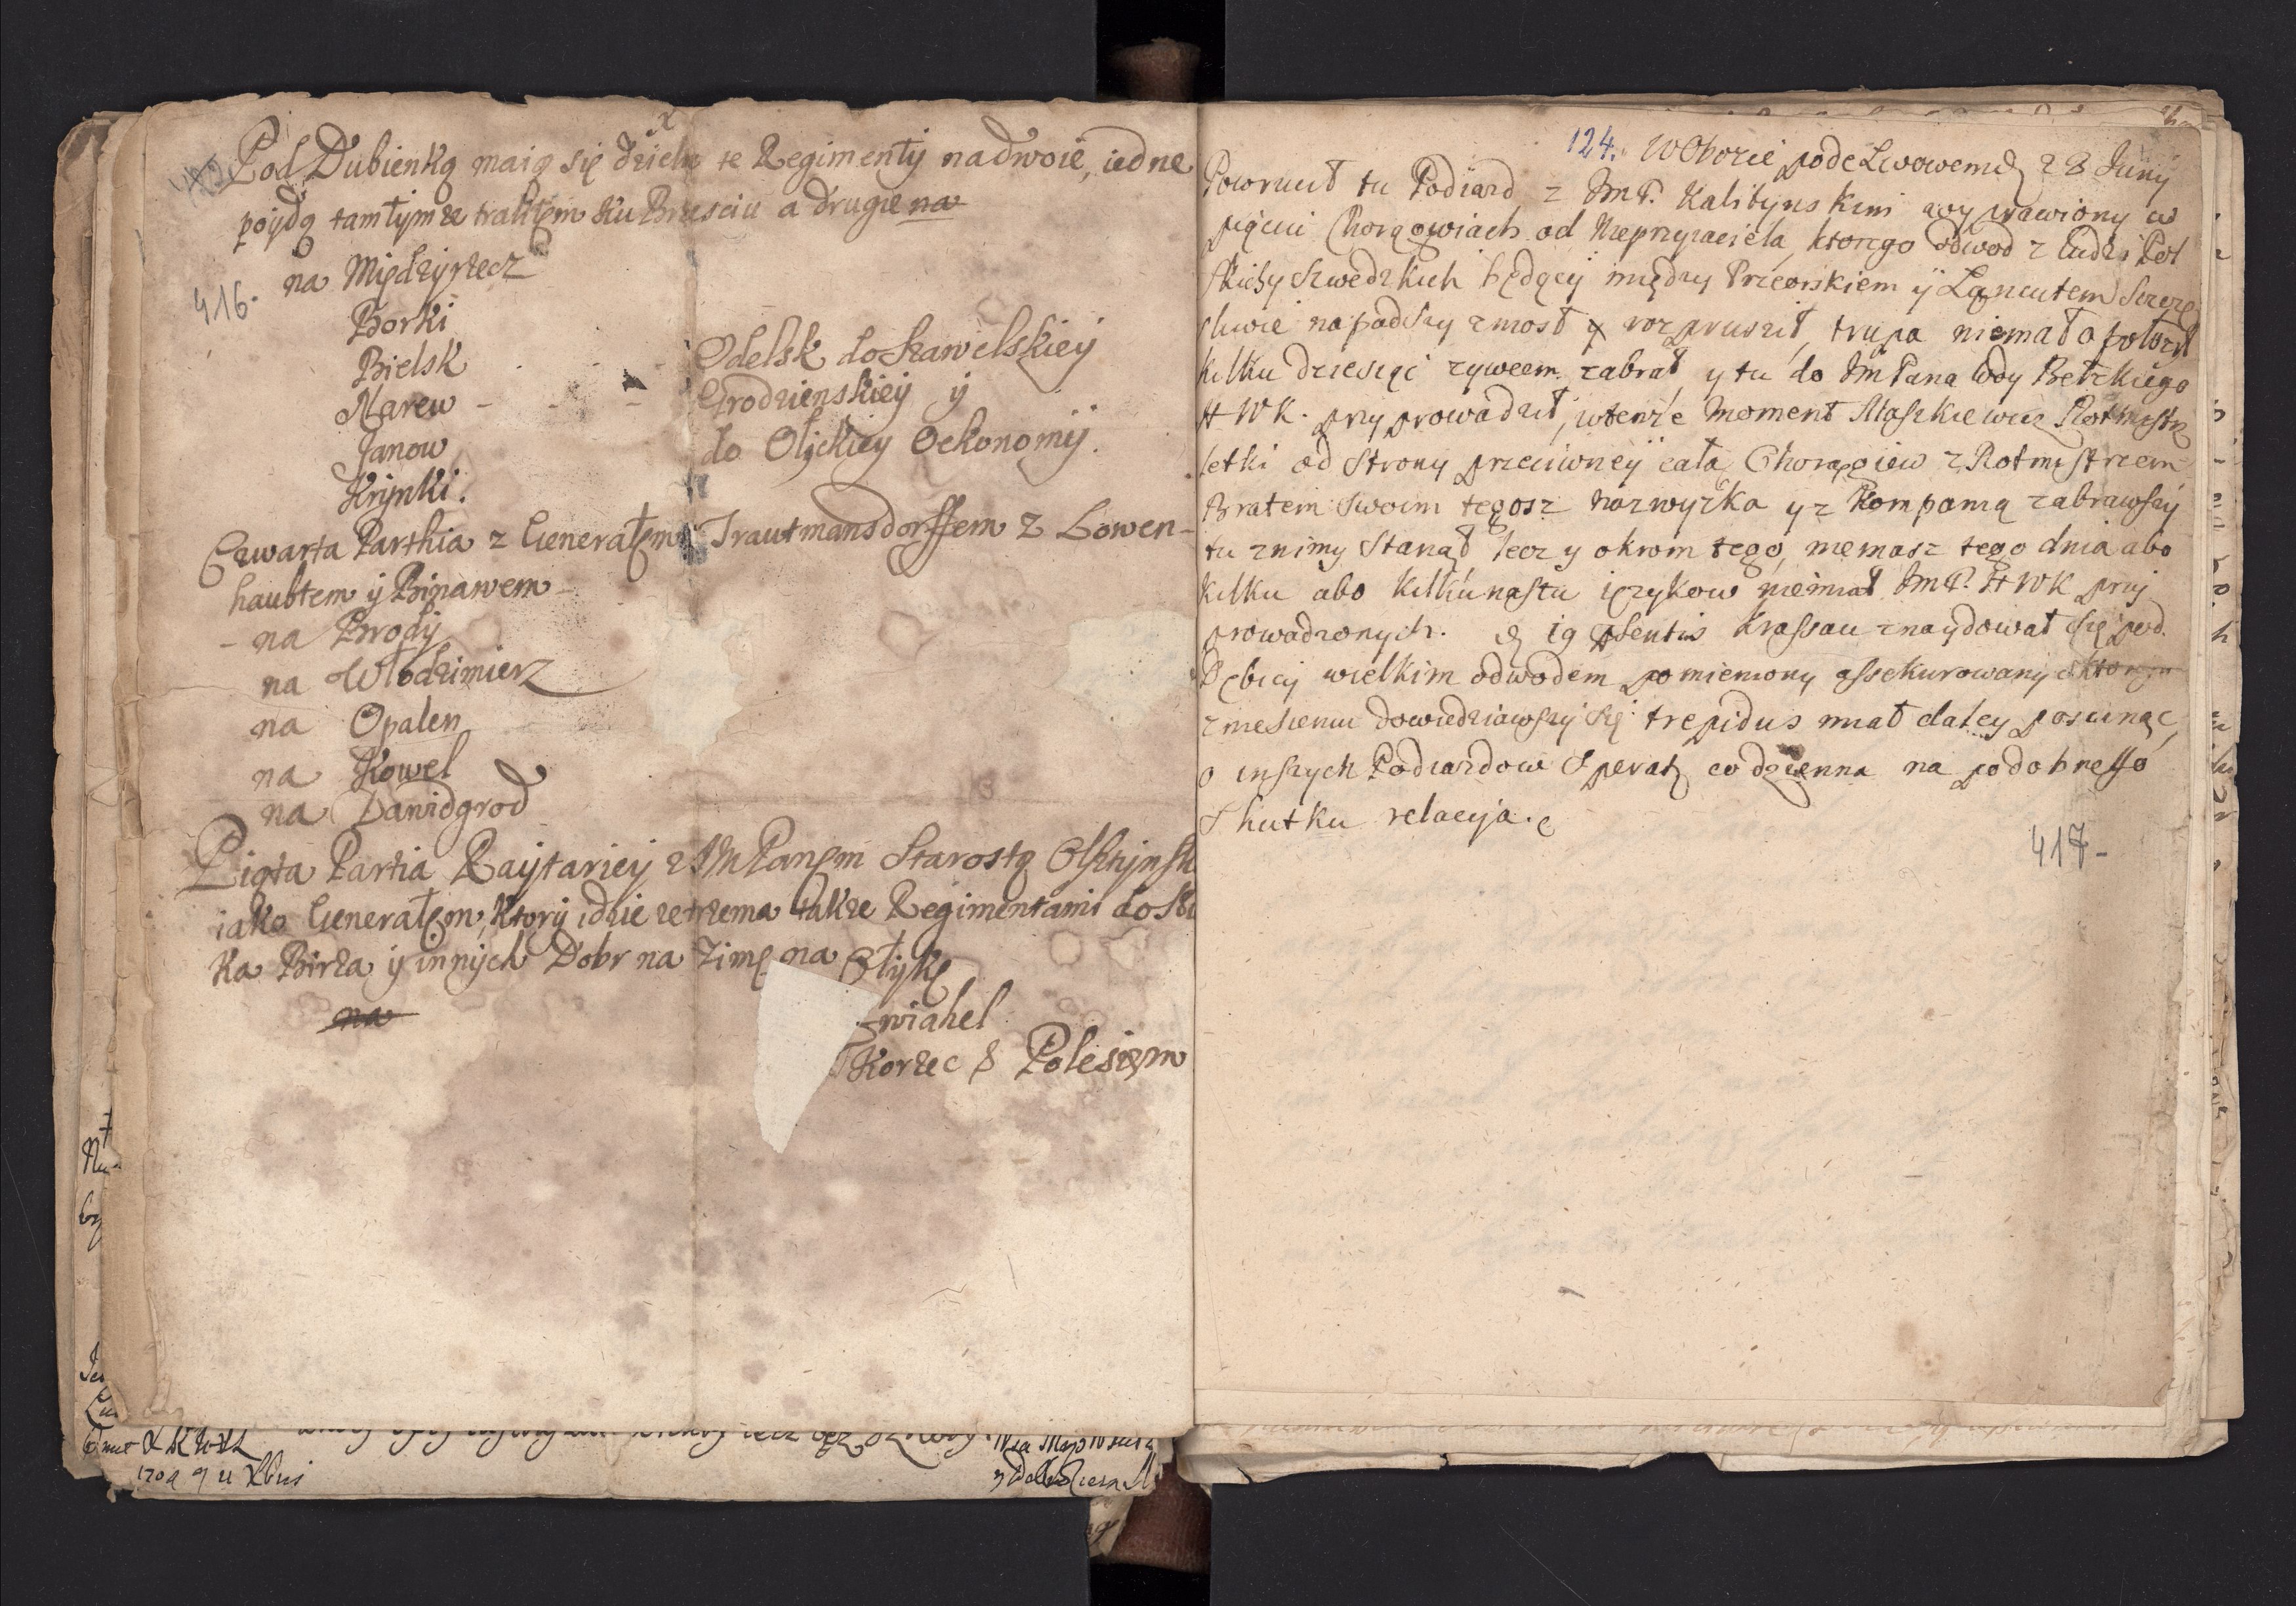 Pod Dubienką maią się dzielic te Regimenty nadwoie, iedne
poÿdą tamtymze traktem ku Brzesciu a drugie na
416.
na Międzyrzecz
Borki
Bielsk
Narew - - -
Janow
Krÿnki.
Odelsk do Szawelskieÿ
Grodzienskieÿ ÿ
do Olickieÿ Oekonomÿ.
Czwarta Parthia z Generałem Trautmansdorffem z Lowen-
haubtem ÿ Binawem
- na Brodÿ
na Włodzimierz
na Opalen
na Kowel
na Dawidgrod
Piąta Partia Raÿtarieÿ z JM Panem Starostą Olsztÿnsk
iako Generałem, ktorÿ idzie zetrzema także Regimentami do Słu
ka Birża ÿ innÿch Dobr na Zimę na Ołykę
na
zwiahel
Korzec & Polesięm
124. W Obozie pode Lwowem d. 28 Junÿ
Powrucił tu Podiazd z JmP. Kalitynskim wyprawiony w
pięciu Chorągwiach od Nieprzyiaciela, ktorego odwod z ludzi Pol
skich y Szwedzkich będącÿ między Przeorskiem ÿ Łancutem Szczę
sliwie napadszy zniosł y rozpruszÿł, trupa niemało położył
kilku dziesiąt zywcem zabrał, y tu do Jm Pana Wdy Bełzkiego
H W K. przyprowadził, wtenże Moment Staszkiewicz Rotmistrz
letki od Strony przeciwneÿ całą Chorągiew z Rotmistrzem
Bratem Swoim tegosz nazwyzka y z Kompanią zabrawszÿ
tu znimy Stanął lecz y okrom tego, niemasz tego dnia abo
kilku abo kilkunastu ięzykow niemiał JmP. H W K przÿ
prowadzonych. d. 19 psentis Krassau znaydował się pod
Dębicą wielkim odwodem pomieniony assekurowanÿ o ktorego
zniesieniu dowiedziawszÿ się trepidus miał daleÿ posunąc,
o inszych Podiazdow Speratz codzienna na podobnesso
Skutku relacyja.
417-